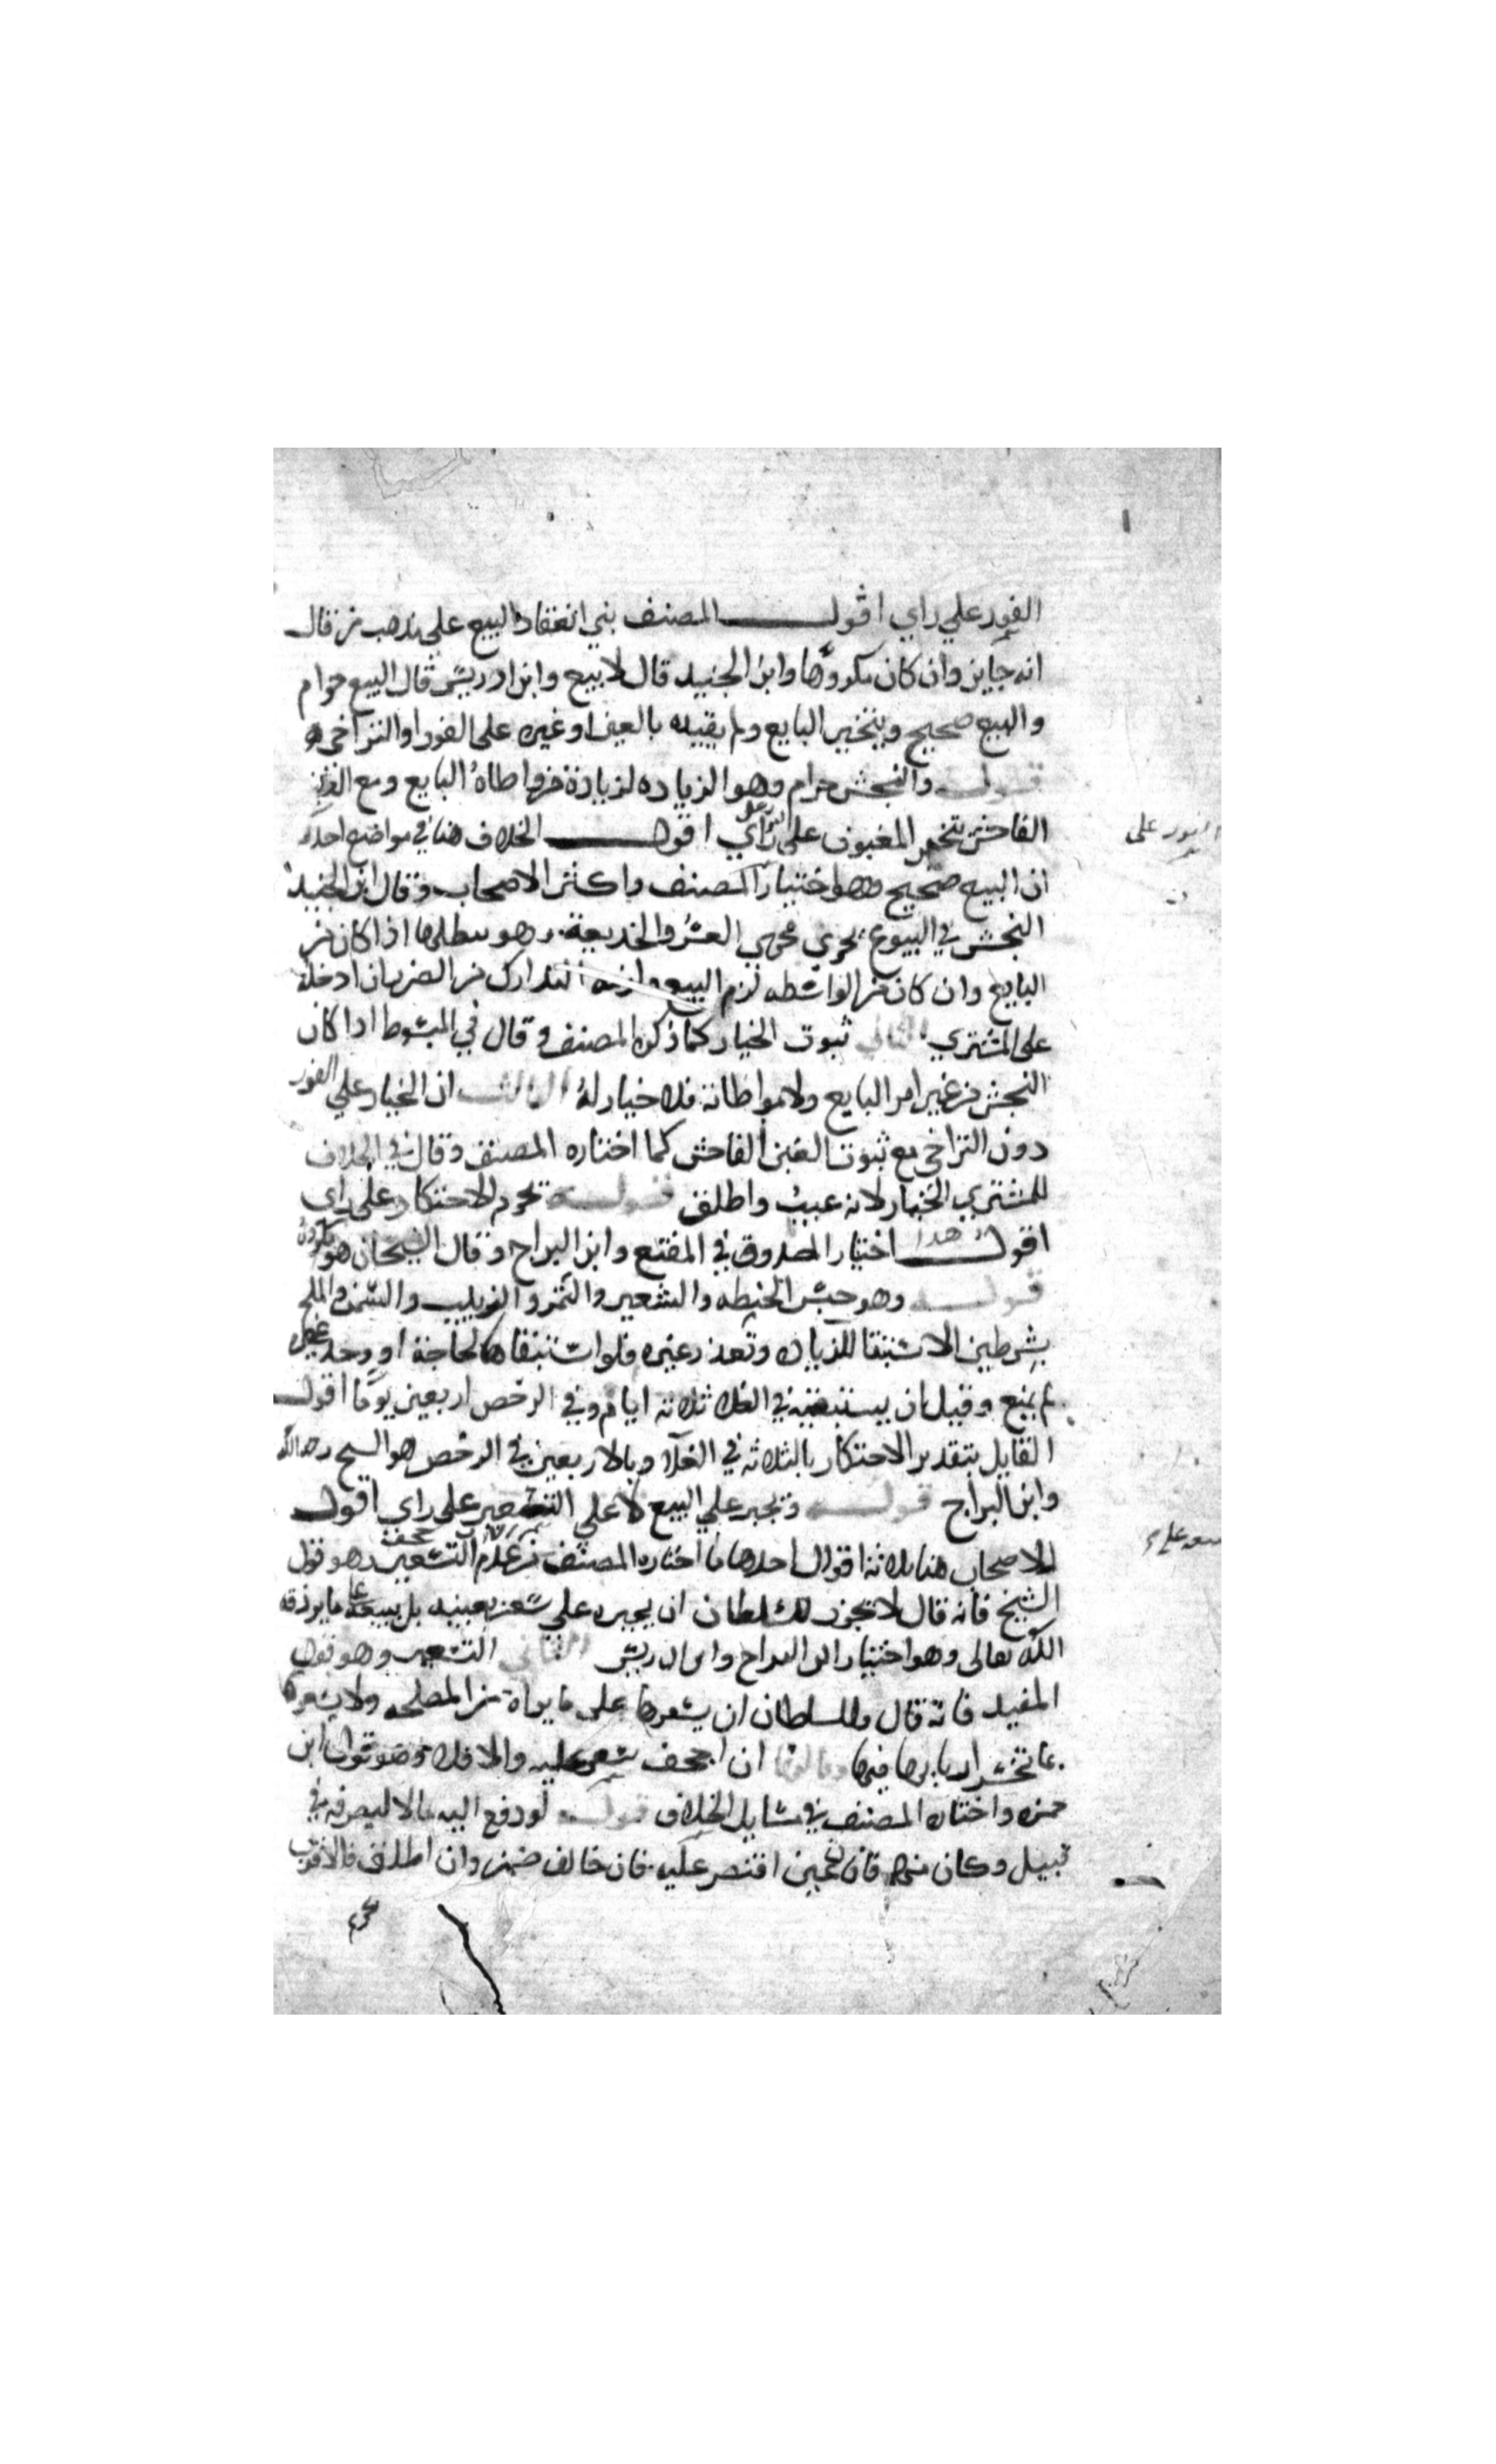 الفور علي راي اقول المصنف بني انعقاد البيع على مذهب من قال
انه جايز وان كان مكروها وابن الجنيد قال لا بيع وابن ادريس قال البيع حرام
والبيع صحيح ويتخير البايع ولم يقيده بالعيب او غيره على الفور او التراخي
قوله والنجش حرام وهو الزياده لزيادة من واطاه البايع ومع الغبن
الفاحش يتخير المغبون على راي اقول الخلاف هنا في مواضع احدها
ان البيع صحيح وهو اختيار المصنف واكثر الاصحاب وقال ابن الجنيد
النجش في البيوع يجري مجري الغش والخديعة وهو يبطلها اذا كان من
البايع وان كان من الواسطه لزم البيع ولزمه التدارك من الضرر ان ادخله
على المشتري الثاني ثبوت الخيار كما ذكره المصنف وقال في المبسوط اذا كان
النجش من غير امر البايع ولا مواطاته فلا خيار له الثالث ان الخيار علي الفور
دون التراخي مع ثبوت الغبن الفاحش كما اختاره المصنف وقال في الخلاف
للمشتري الخيار لانه عيب واطلق قوله يحرم الاحتكار على راي
اقول هذا اختيار الصدوق في المقنع وابن البراج وقال الشيخان هو مكروه
قوله وهو حبس الحنطه والشعير والتمر والزبيب والسمن والملح
بشرطين الاستبقا للزياده وتعذر غيره فلو استبقاها لحاجة او وجد غيره
لم يمنع وقيل ان يستبقيه في الغلا ثلاثه ايام وفي الرخص اربعين يوما اقول
القايل بتقدير الاحتكار بالثلاثه في الغلا وبالاربعين في الرخص هو الشيخ رحمه الله
وابن البراج قوله ويجبر علي البيع لا علي التسعير على راي اقول
للاصحاب هنا ثلاثة اقوال احدها ما اختاره المصنف من عدم التسعير وهو قول
الشيخ فانه قال لا يجوز للسلطان ان يجبره علي سعر بعينه بل يبيعه بما يرزقه
الله تعالى وهو اختيار ابن البراج وابن ادريس الثاني التسعير وهو قول
المفيد فانه قال وللسلطان ان يسعرها على ما يراه من المصلحه ولا يسعرها
بما يخسر اربابها فيها وثالثها ان اجحف سعر عليه والا فلا وهو قول ابن
حمزه واختاره المصنف في مسايل الخلاف قوله لو دفع اليه مالا ليصرفه في
قبيل وكان منهم فان عين اقتصر عليه فان خالف ضمن وان اطلق فالاقرب